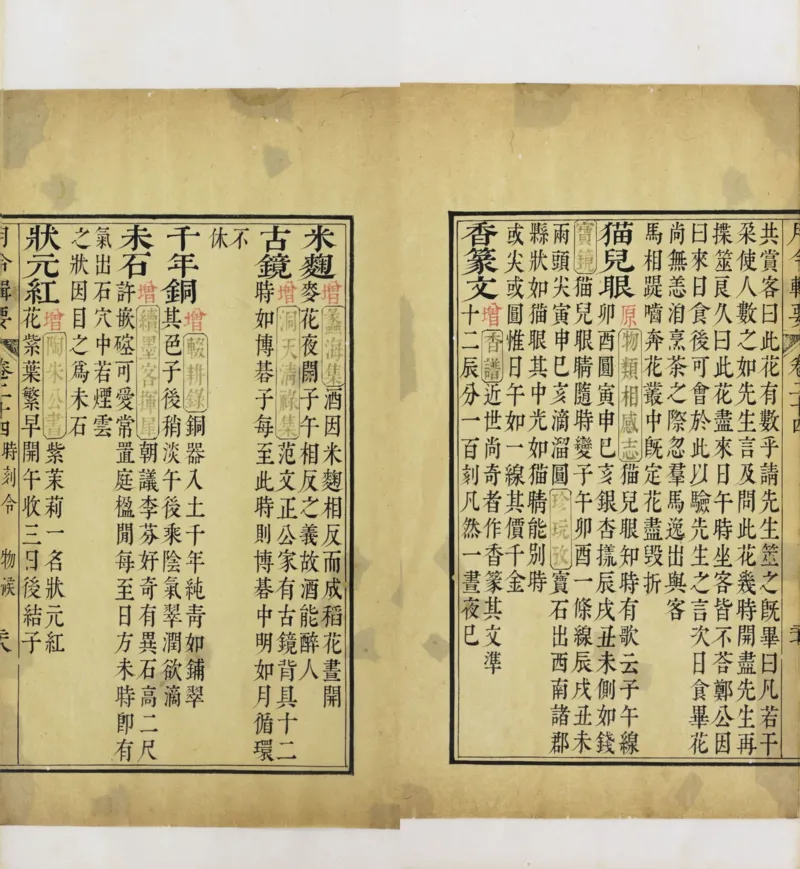 月令輯要 卷二十四
共賞客曰此花有數乎請先生筮之既畢曰凡若干
朵使人數之如先生言及問此花幾時開盡先生再
揲筮良久曰此花盡來日午時坐客皆不荅鄭公因
曰來日食後可會於此以驗先生之言次日食畢花
尚無恙洎烹茶之際忽羣馬逸出與客
馬相踶嚙奔花叢中既定花盡毀折
猫兒眼 原 物類相感志 猫兒眼知時有歌云子午線
卯酉圓寅申巳亥銀杏㨾辰戌丑未側如錢
寶鏡 猫兒眼睛隨時變子午卯酉一條線辰戌丑未
兩頭尖寅申巳亥滴溜圓 珍玩攷 寶石出西南諸郡
縣狀如猫眼其中光如猫睛能別時
或尖或圓惟日午如一線其價千金
香篆文 增 香譜 近世尚奇者作香篆其文準
十二辰分一百刻凡然一晝夜已
米麯 增 蠡海集 酒因米麯相反而成稻花晝開
麥花夜開子午相反之義故酒能醉人
古鏡 增 洞天清祿集 范文正公家有古鏡背具十二
時如博碁子每至此時則博碁中明如月循環
不
休
千年銅 增 輟耕錄 銅器入土千年純青如鋪翠
其色子後稍淡午後乘陰氣翠潤欲滴
未石 增 續墨客揮犀 朝議李芬好奇有異石高二尺
許嵌可愛常置庭楹閒每至日方未時即有
氣出石穴中若煙雲
之狀因目之爲未石
狀元紅 增 陶朱公書 紫茉莉一名狀元紅
花紫葉繁早開午收三日後結子
月令輯要 卷二十四 時刻令 物候